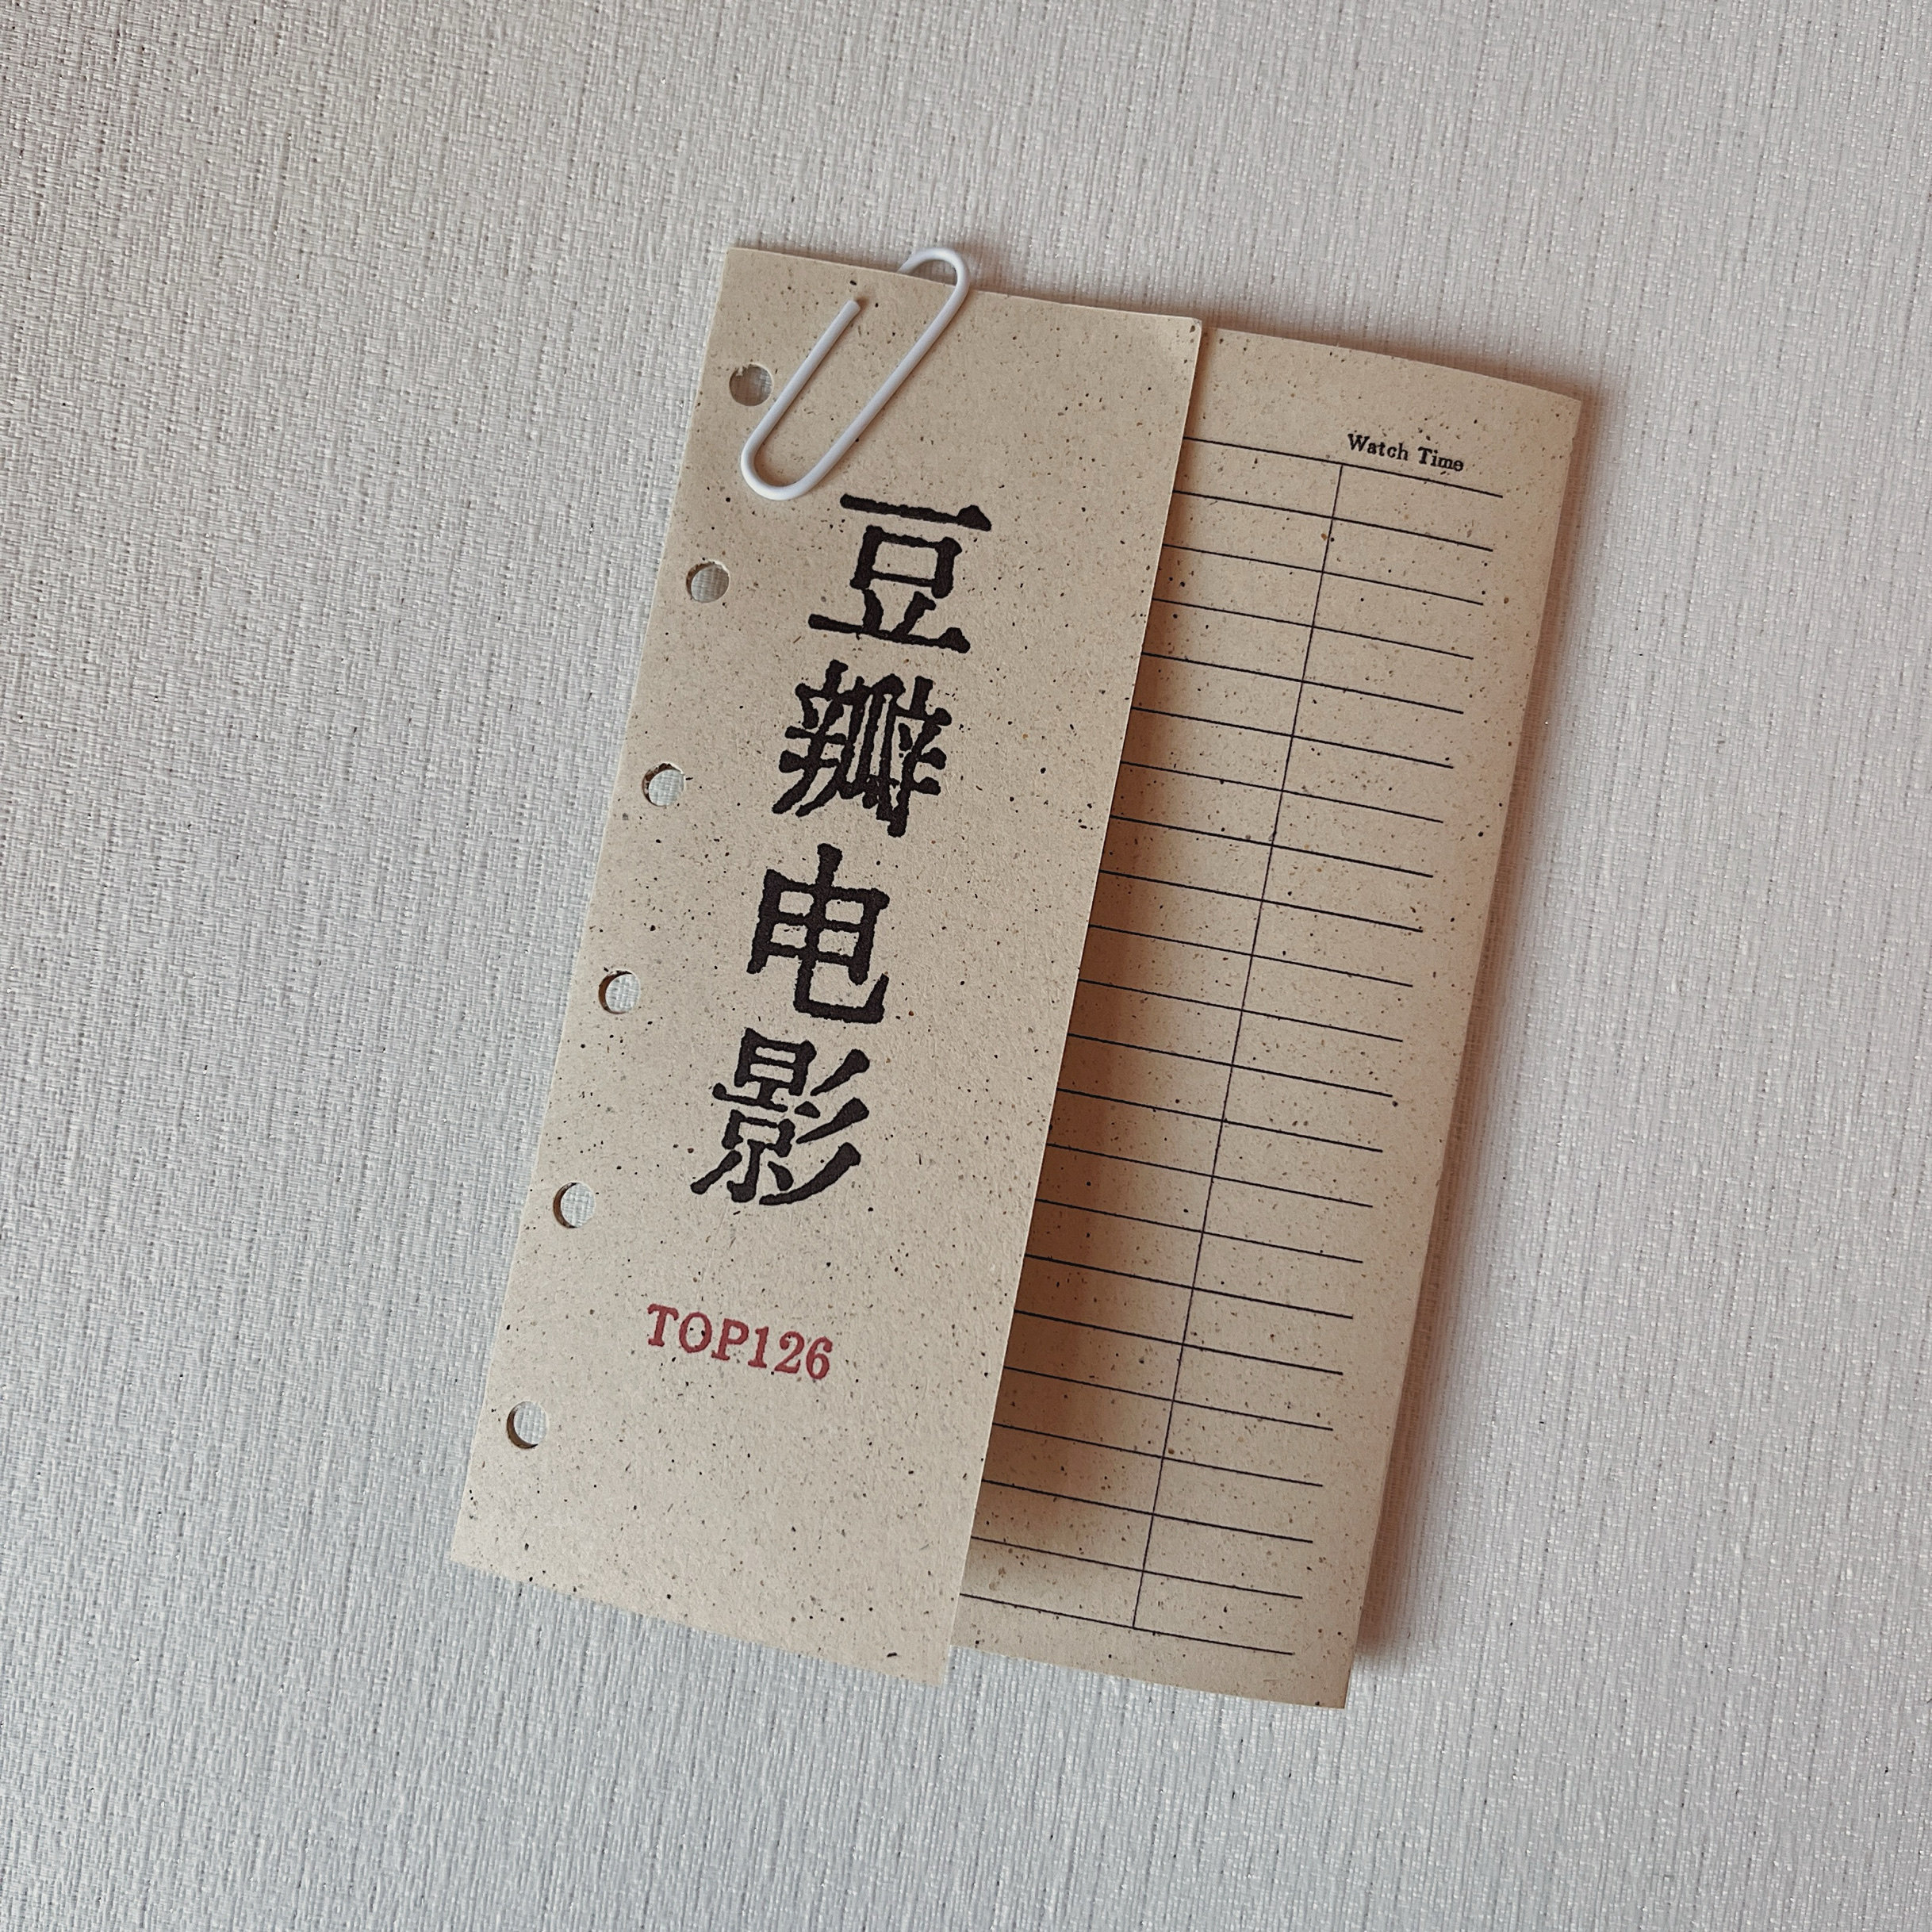 豆瓣电影
TOP126
Watch Time